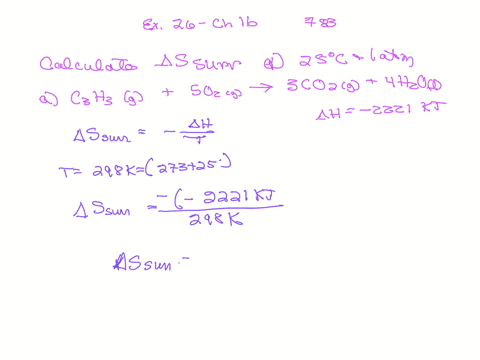 Ex. 26 - Ch 16 788
Calculate ΔSsurr @ 25°C + 1 atm
a) C3H3 (g) + 5O2 (g) → 3CO2 (g) + 4H2O(l)
ΔH = -2221 KJ
ΔSsurr = - ΔH/T
T = 298K = (273+25°)
ΔSsurr = -(-2221 KJ/298 K
ΔSsurr =